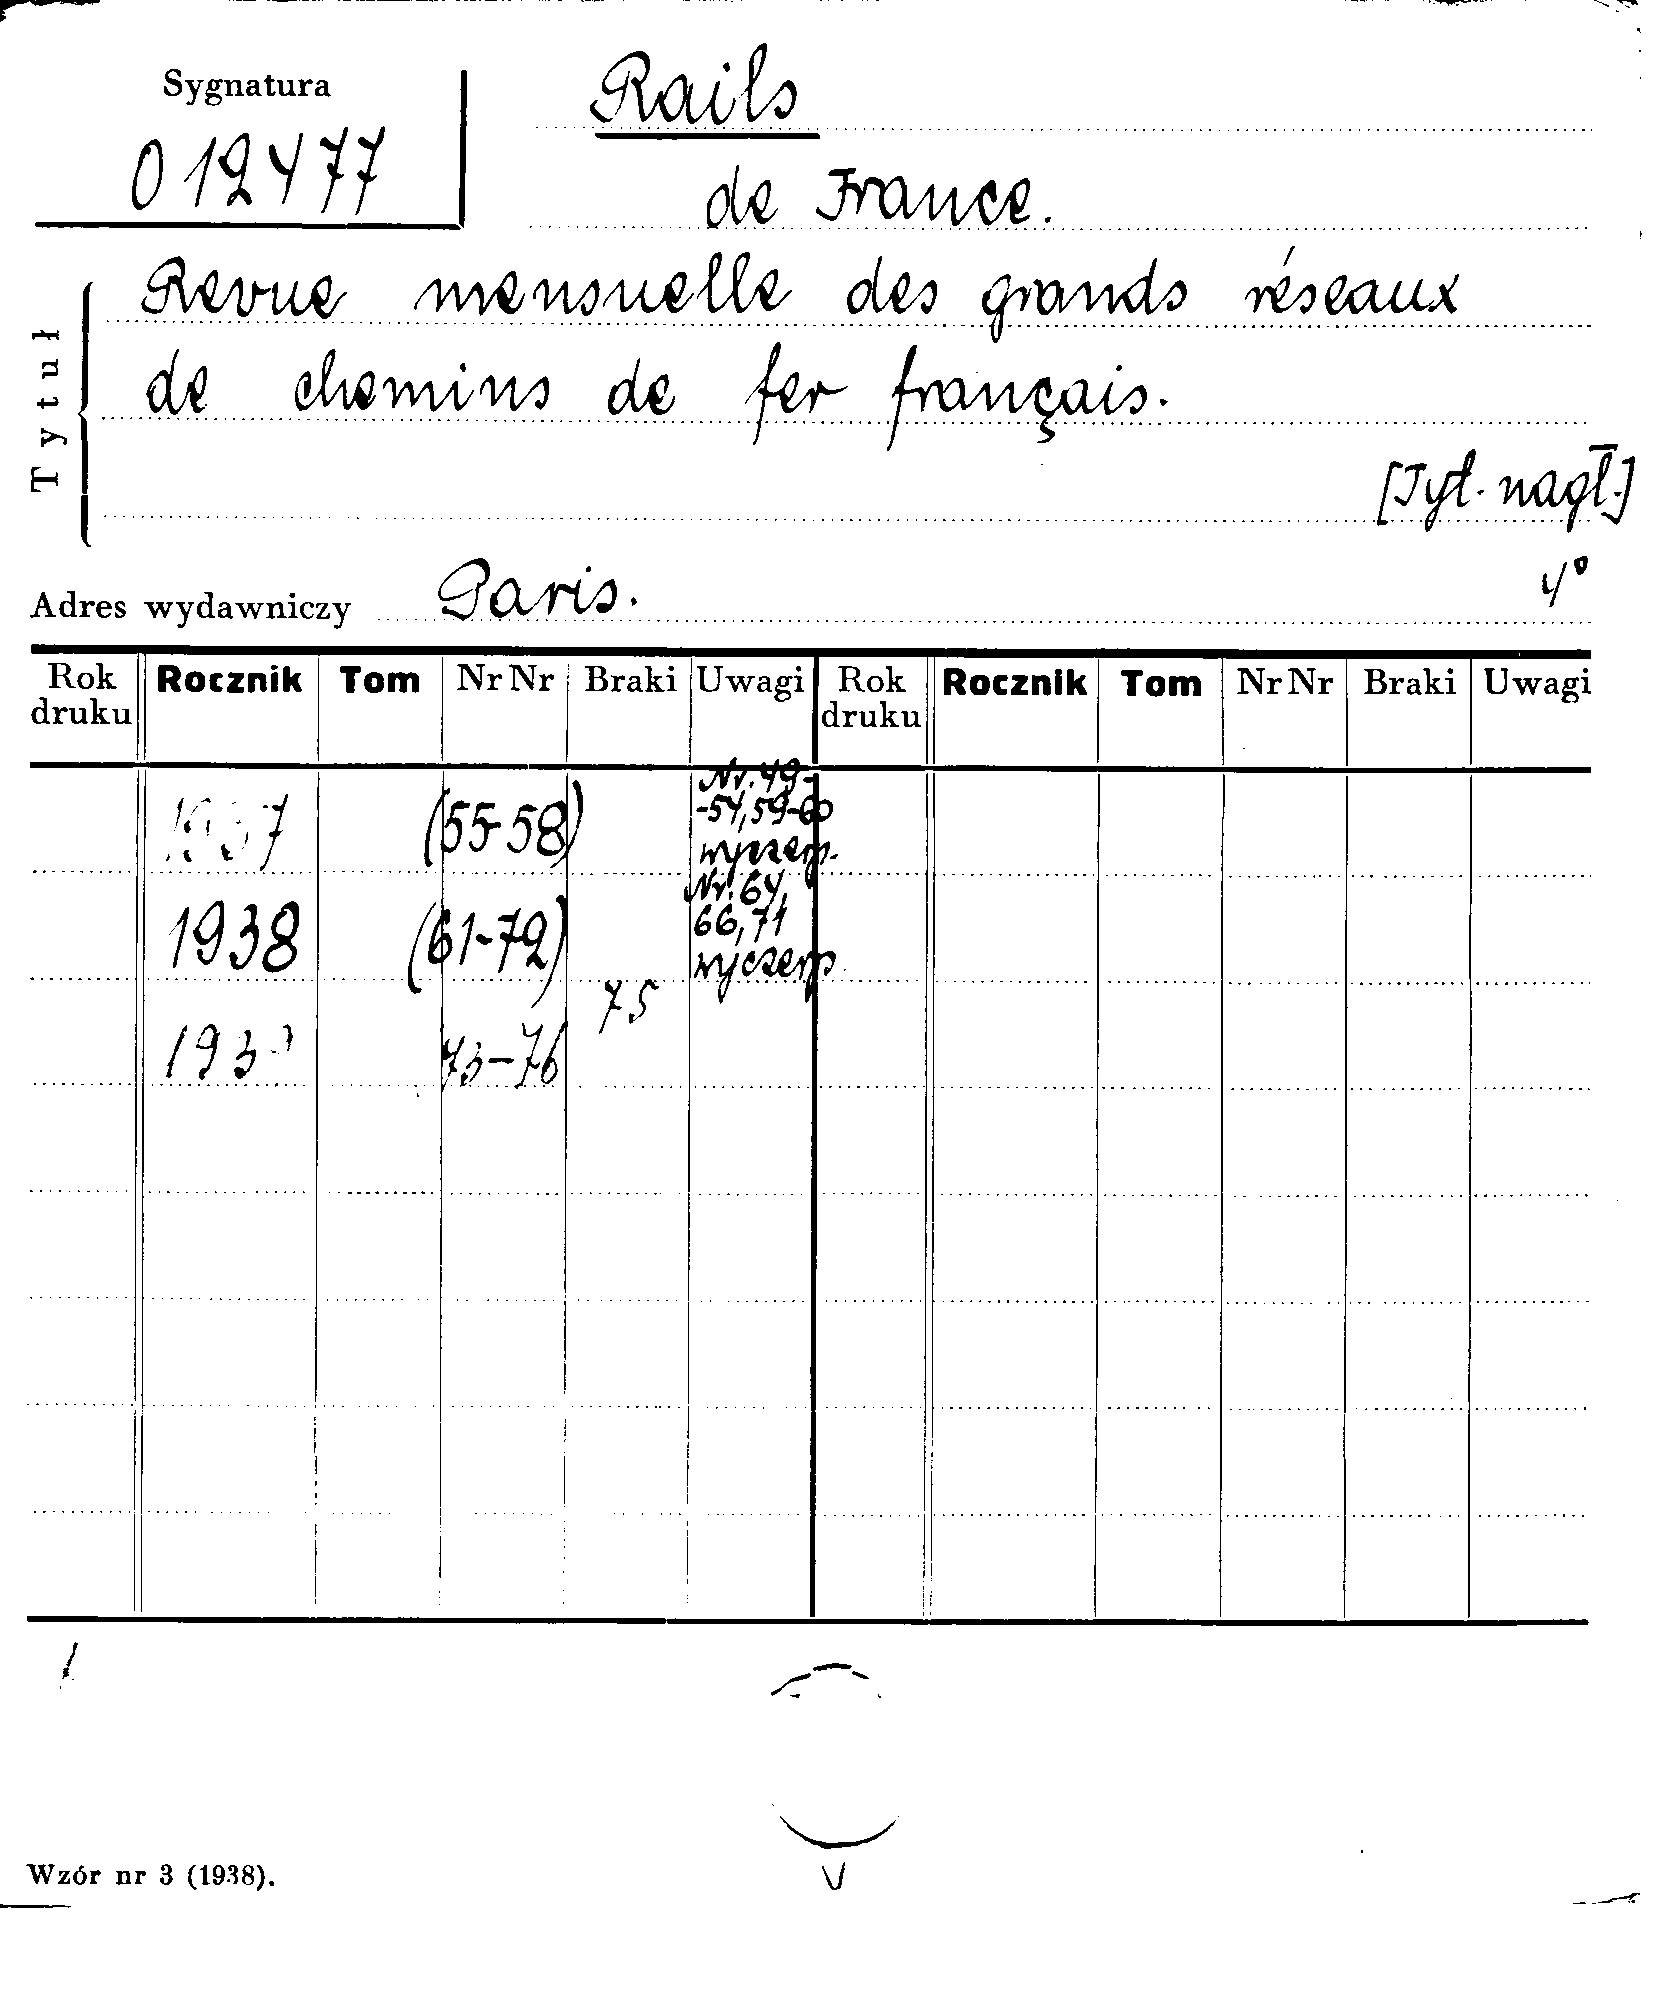 Sygnatura
012477
Rails
de France.
Tytuł
Revue mensuelle des grands réseaux
de chemins de fer français.
[Tyt. nagł.]
4°
Adres wydawniczy Paris.
Rok druku Rocznik Tom Nr Nr Braki Uwagi Rok druku Rocznik Tom Nr Nr Braki Uwagi
1937 (55-58) Nr. 49-
-54, 59-60
wyczerp.
1938 (61-72) Nr. 64,
66, 71
wyczerp.
75
73-76
Wzór nr 3 (1938).